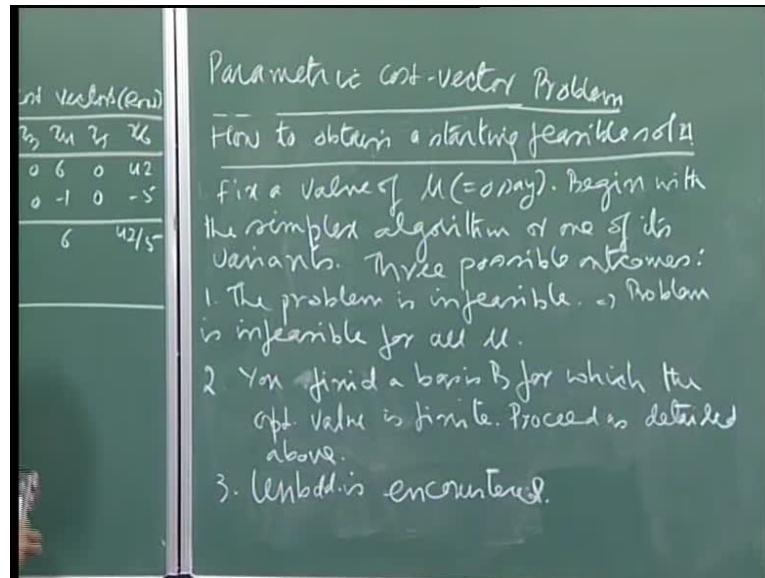 ost vectors (Row)
x3 x4 x5 x6
0 6 0 42
0 -1 0 -5
6 42/5
Parametric cost-vector Problem
How to obtain a starting feasible sol
Fix a value of μ (=0 say). Begin with
the simplex algorithm or one of its
variants. Three possible outcomes:
1. The problem is infeasible. => Problem
is infeasible for all μ.
2 You find a basis B for which the
opt. value is finite. Proceed as detailed
above.
3. Unbdd. is encountered.